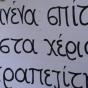 ένα σπίτ
στα χέρι
τραπεζίτ